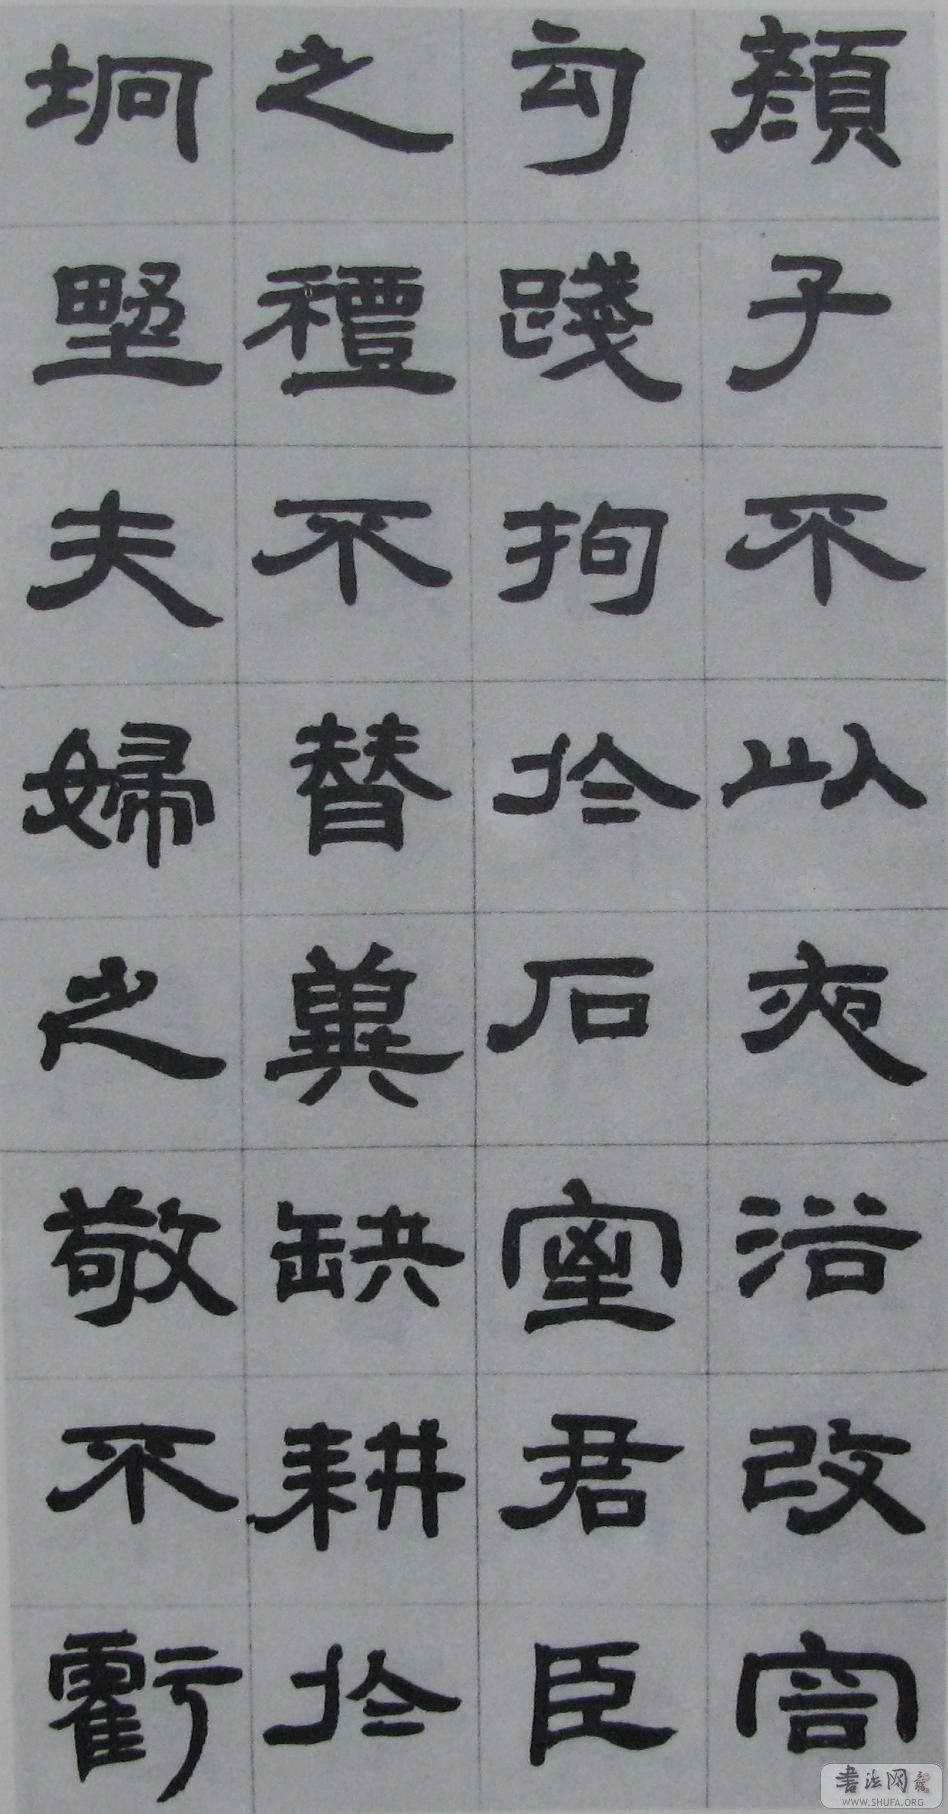 顏子不以夜浴改容
勾踐拘於石室君臣
之禮不替冀缺耕於
坰野夫婦之敬不虧
書法网
WWW.SHUFA.ORG